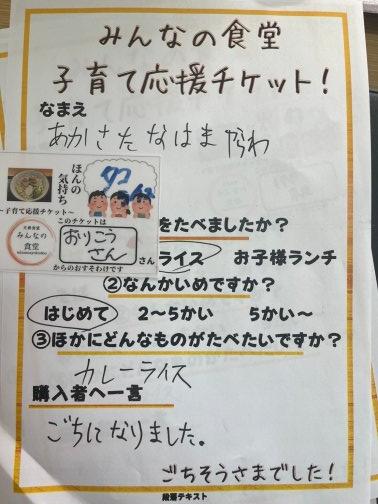 みんなの食堂
子育て応援チケット!
なまえ
あかさたなはまやらわ
ほんの
気持ち
～子育て応援チケット～
みんなの
食堂
このチケットは
おりこう
さん
さん
からのおすそわけです
をたべましたか?
ライス お子様ランチ
②なんかいめですか?
はじめて 2～5かい 5かい～
③ほかにどんなものがたべたいですか?
カレーライス
購入者へ一言
ごちになりました。
ごちそうさまでした!
段落テキスト